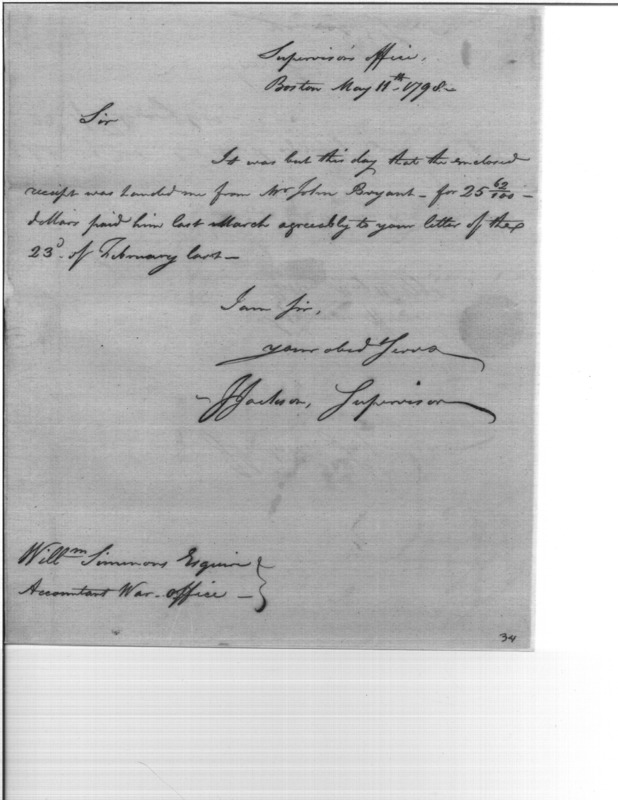 Supervisor's office,
Boston May 11th 1798
Sir
It was but this day that the enclosed
receipt was handed me from Mr John Bryant - for 25 62/100 -
dollars paid him last March agreeably to your letter of the
23d of February last -
I am Sir,
your obed Serv
J Jackson, Supervisor
Willm Simmons Esquire
Accountant War-office -
34